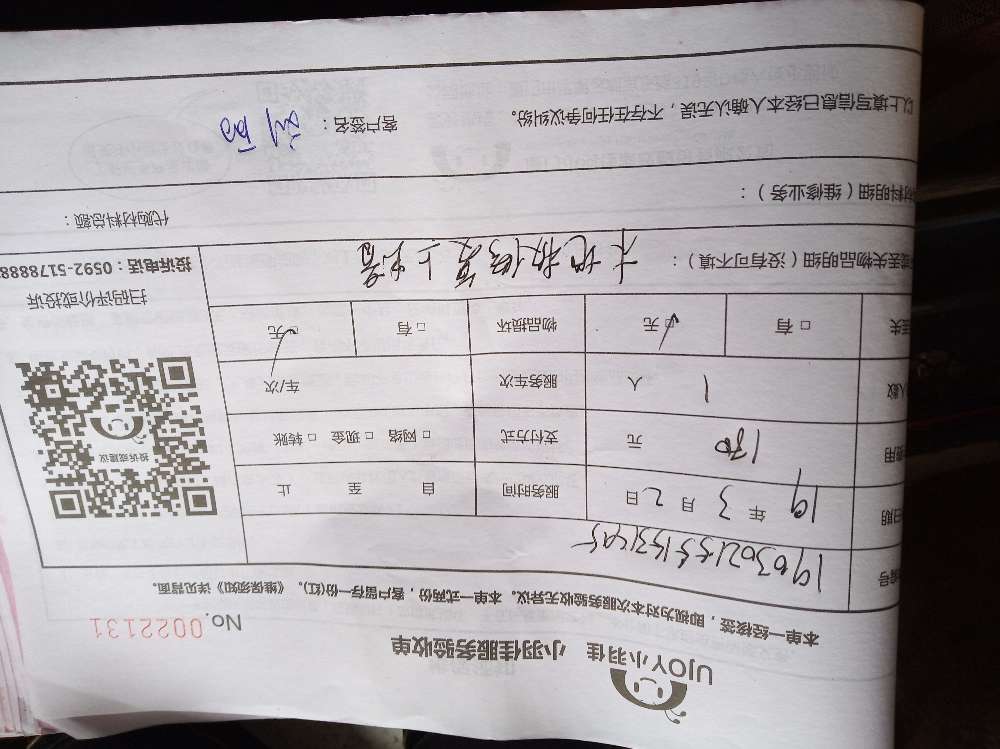 UJOY小羽佳 小羽佳服务验收单
No. 0022131
本单一经核签，即视为对本次服务验收无异议。本单一式两份，客户留存一份(红)。《维保须知》详见背面。
编号
日期 19 年 3 月 2 日 服务时间 自 至 止
费用 180 元 支付方式 □ 网络 □ 现金 □ 转账
人数 1 人 服务车次 车/次
遗失 □ 有 □ 无 物品损坏 □ 有 □ 无
投诉或建议
扫码评价或投诉
投诉电话：0592-5178888
遗丢失物品明细（没有可不填）：
木地板修复上
材料明细（维修业务）：
代购材料总额：
以上填写信息已经本人确认无误，不存在任何争议纠纷。 客户签名：